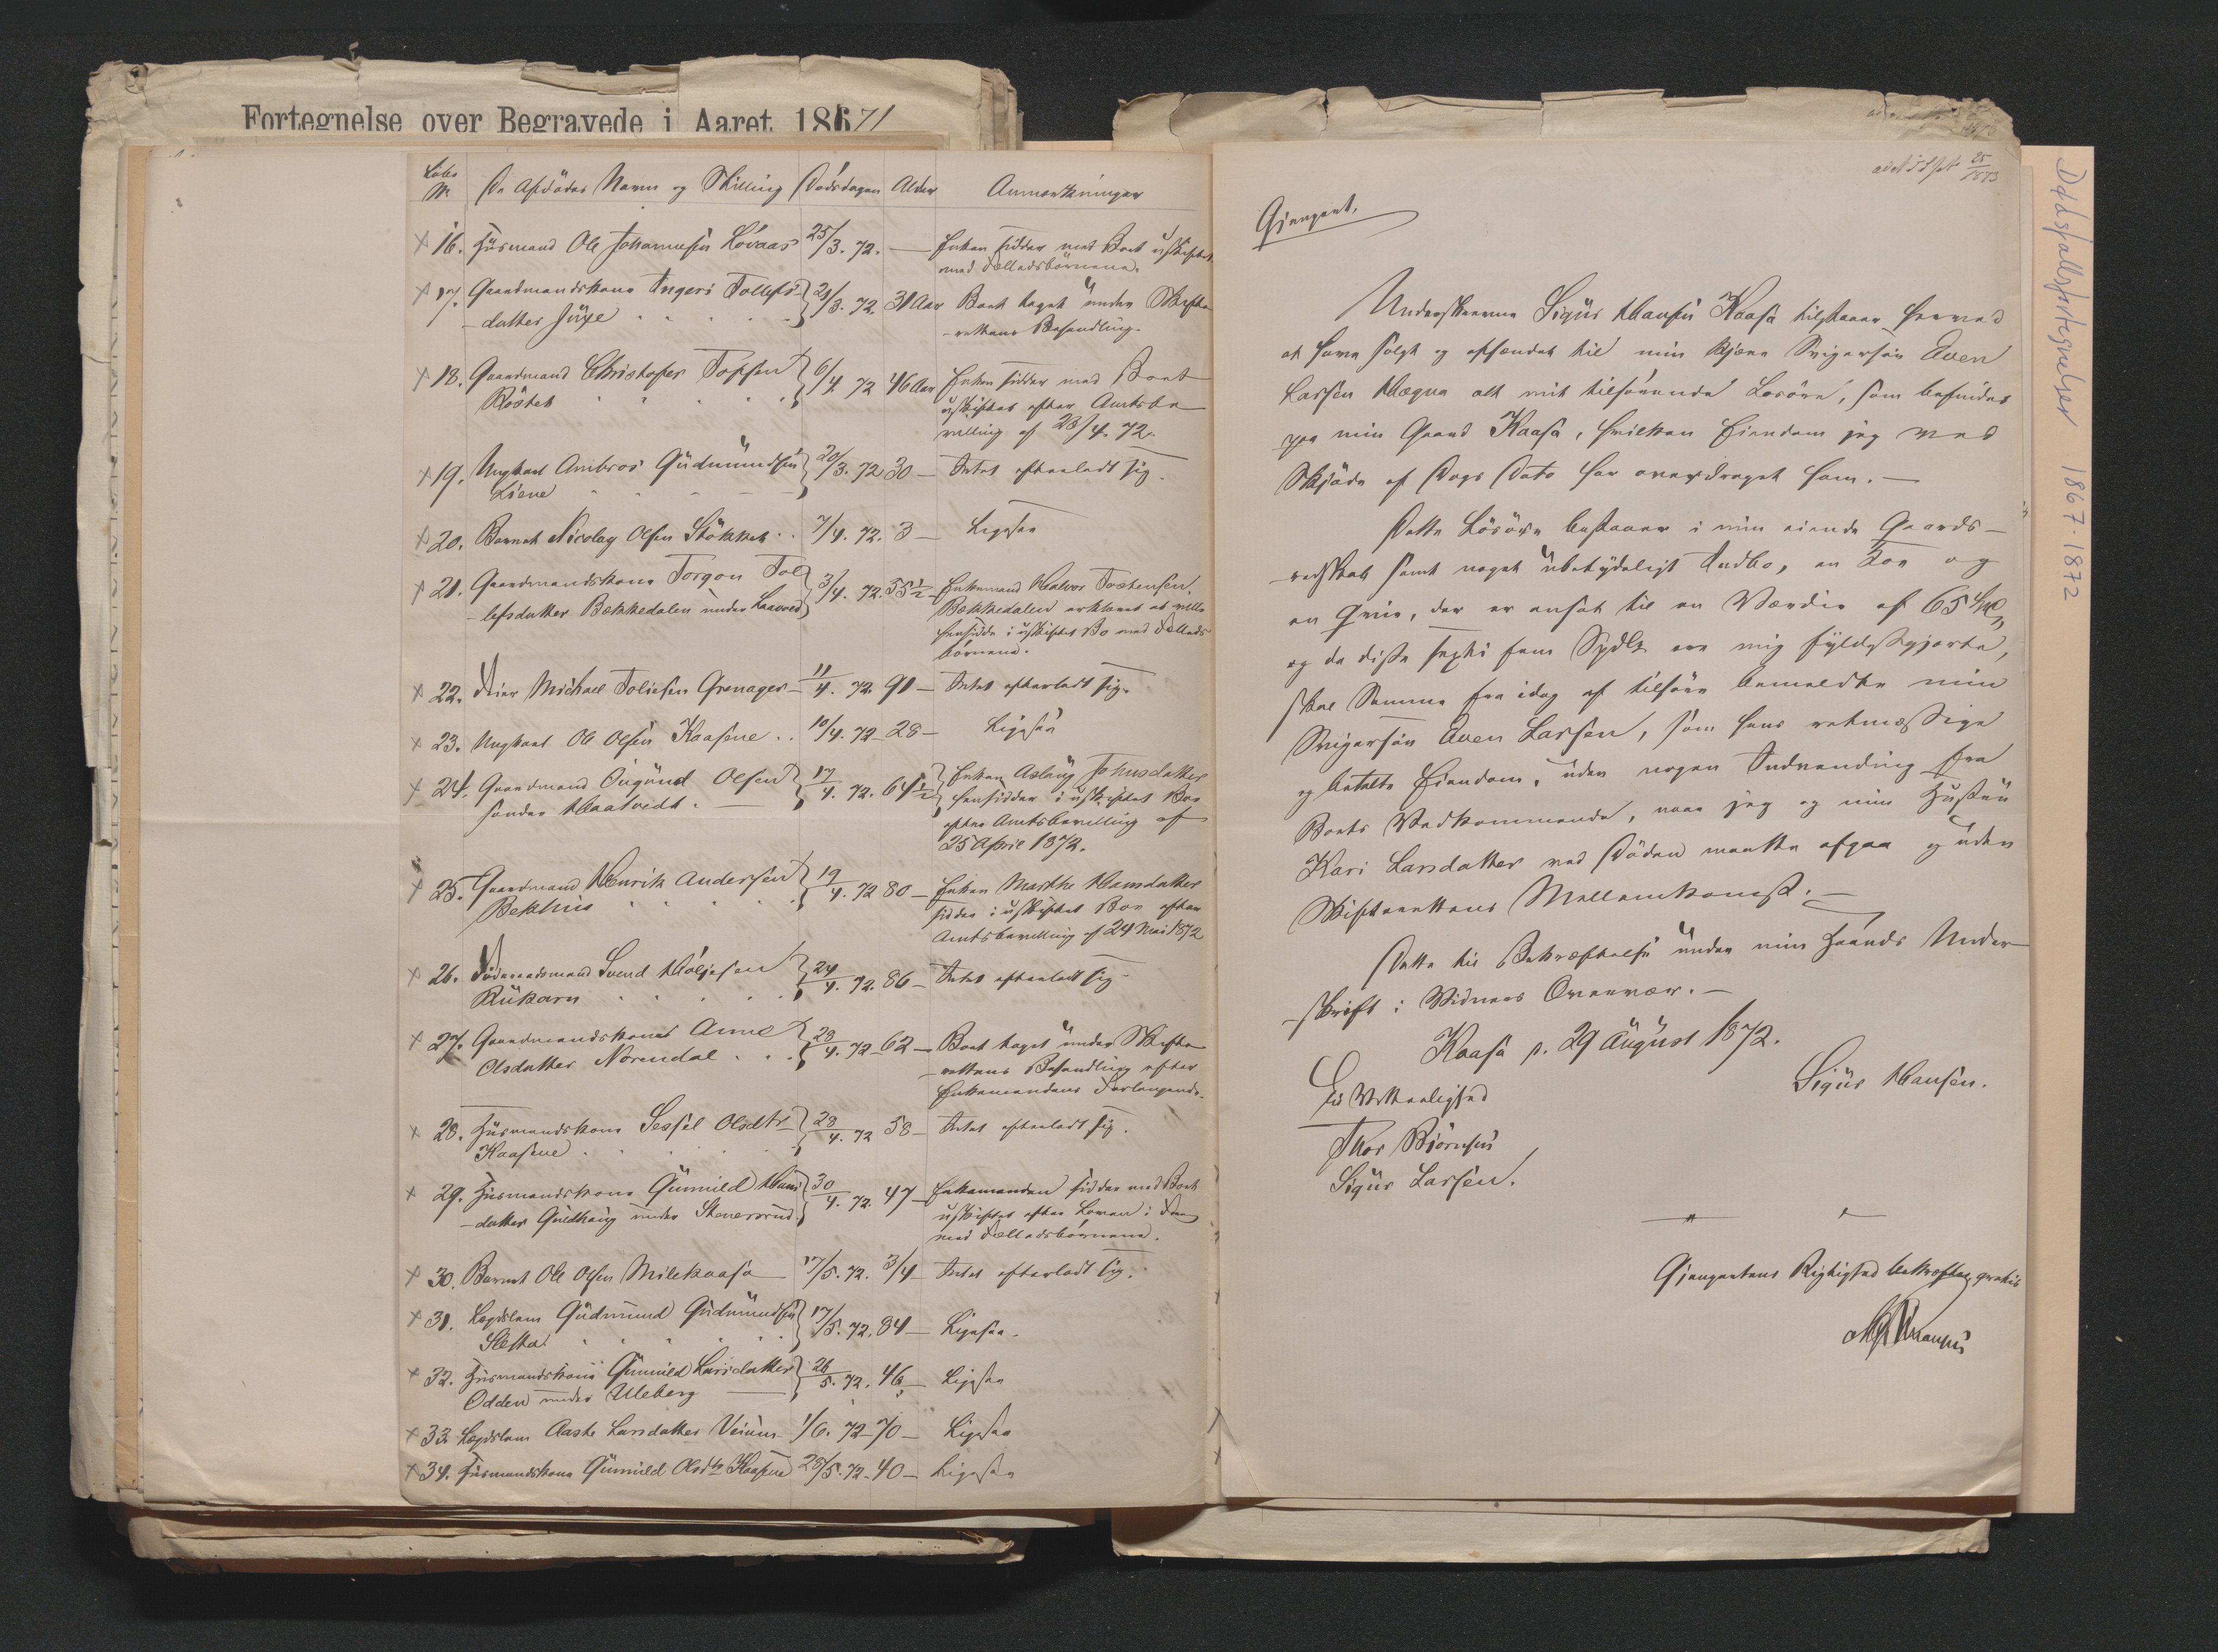 Fortegnelse over Begravede i Aaret 1867/
Løbe
№ De Afdødes Navne og Stilling Dødsdagen Alder Anmærkninger
× 16. Husmand Ole Johannesen Løvaas 25/3. 72. — Enken sidder med Boet uskiftet
med Fælledsbørnene.
× 17. Gaardmandskone Ingeri Tollefs- 21/3. 72. 31 Aar Boet taget under Skifte-
-datter Juxe -rettens Behandling.
× 18. Gaardmand Christofer Topsen 6/4 72 46 Aar Enken sidder med Boet
Røstet uskiftet efter Amtsbe
villing af 23/4. 72.
× 19. Ungkarl Ambros Gudmundsen 20/3. 72 30 — Intet efterladt sig.
Liene
× 20. Barnet Nicolay Olsen Stokket 7/4. 72. 3 — Ligesaa
× 21. Gaardmandskone Torgon Tol 3/4. 72. 35½ — Enkemand Halvor Tostensen
-lefsdatter Bekkedalen under Laavoed Bekkedalen erklæret at ville
hensidde i uskiftet Bo med Fælleds
børnene.
× 22. Inder Michael Toliefsen Grenager — 11/4. 72. 91 — Intet efterladt sig.
× 23. Ungkarl Ole Olsen Kaasene 10/4. 72 28 — Ligesaa
× 24. Gaardmand Øugund Olsen 17/4. 72. 64½ Enken Aslaug Johnsdatter
søndre Haatvedt. — hensidder i uskiftet Boe
efter Amtsbevilling af
25 April 1872.
× 25. Gaardmand Henrik Andersen 19/4. 72 80 — Enken Marthe Hansdatter
Bekhus sidder i uskiftet Boe efter
Amtsbevilling af 24 Mai 1872
× 26. Føderaadsmand Svend Høljesen 24/4. 72. 86 — Intet efterladt sig
Rukarn
× 27. Gaardmandskone Anne 28/4. 72 62 — Boet taget under Skifte
Olsdatter Norendal -rettens Behandling efter
Enkemandens Forlangende.
× 28. Husmandskone Sessel Olsdtr 28/4. 72 58 — Intet efterladt sig.
Kaasene
× 29. Husmandskone Gunnild Hans 30/4. 72. 47 — Enkemanden sidder med Boet
-datter Gudhaug under Stenersrud uskiftet efter Loven i Fæl
med Fælledsbørnene.
× 30. Barnet Ole Olsen Milekaasa 17/5. 72. 3/4 — Intet efterladt sig.
× 31. Lægdslem Gudmund Gudmundsen 17/5. 72. 84 — Ligesaa.
Sletta
× 32. Husmandskone Gunnild Larsdatter 26/5. 72. 46 — Ligesaa
Odden under Uleberg
× 33. Lægdslem Aaste Larsdatter Veium 1/6. 72 70 — Ligesaa
× 34. Husmandskone Gunnild Olsdtr Kaasene 28/5. 72 40 — Ligesaa
25/1873
Gjenpart.
Underskrevne Sigur Hansen Kaasa tilstaaer herved
at have solgt og afhændet til min kjære Svigersøn Even
Larsen Hægna alt mit tilhørende Løsøre, som befindes
paa min Gaard Kaasa, hvilken Eiendom jeg ved
Skjøde af Dags Dato har overdraget ham. —
Dette Løsøre bestaaer i min eiende Gaards-
-redskab samt noget ubetydeligt Indbo, en Koe og
en Qvie, der er ansat til en Værdie af 65 Spdlr
og da disse sexti fem Spdlr ere mig fyldestgjorte,
skal Samme fra idag af tilhøre bemeldte min
Svigersøn Even Larsen, som hans retmæssige
og betalte Eiendom, uden nogen Indvending fra
Boets Vedkommende, naar jeg og min Hustru
Kari Larsdatter ved Døden maatte afgaa og uden
Skifterettens Mellemkomst. —
Dette til Bekræftelse under min Haands Under
-skrift i Vidners Overvær. —
Kaasa p. 29 August 1872.
Sigur Hansen.
Til Vitterlighed
Thor Bjørnsen
Sigur Larsen.
Gjenpartens Rigtighed bekræftes gratis
Dødsfallsfortegnelser 1867-1872